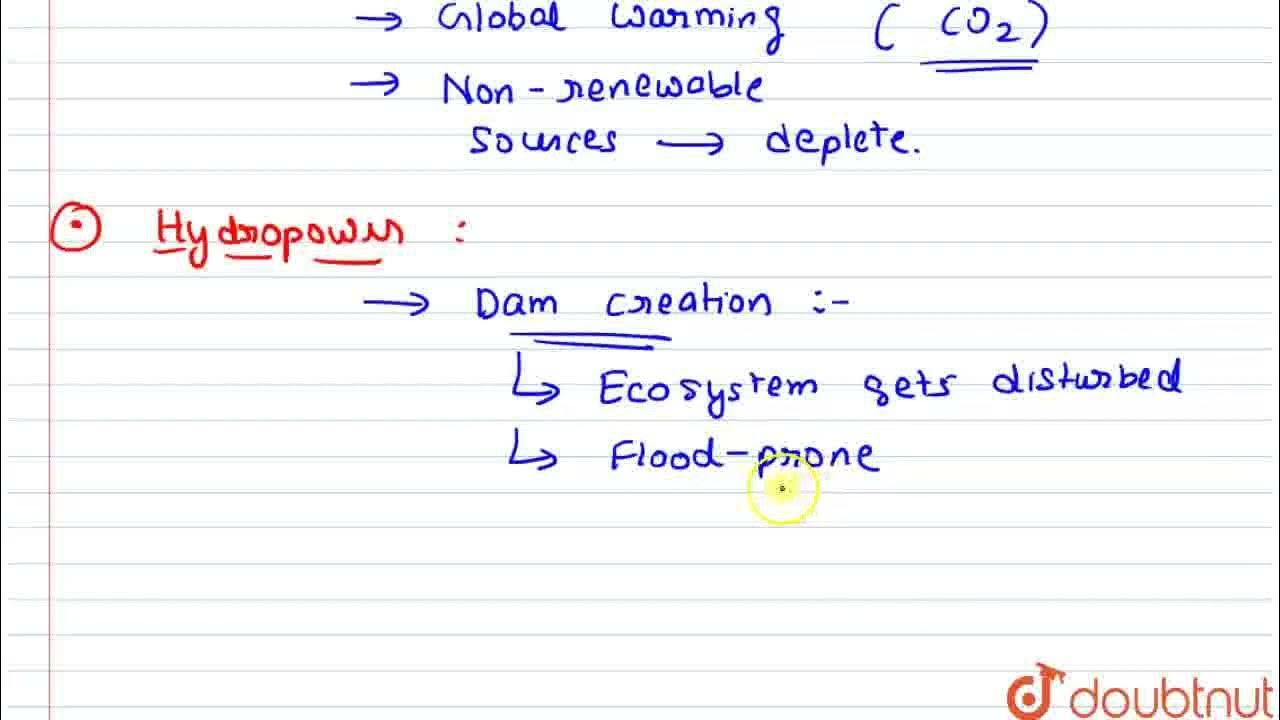 → Global warming ( CO₂ )
→ Non-renewable
sources → deplete.
Hydropower :
→ Dam creation :-
↳ Ecosystem gets disturbed
↳ Flood-prone
doubtnut